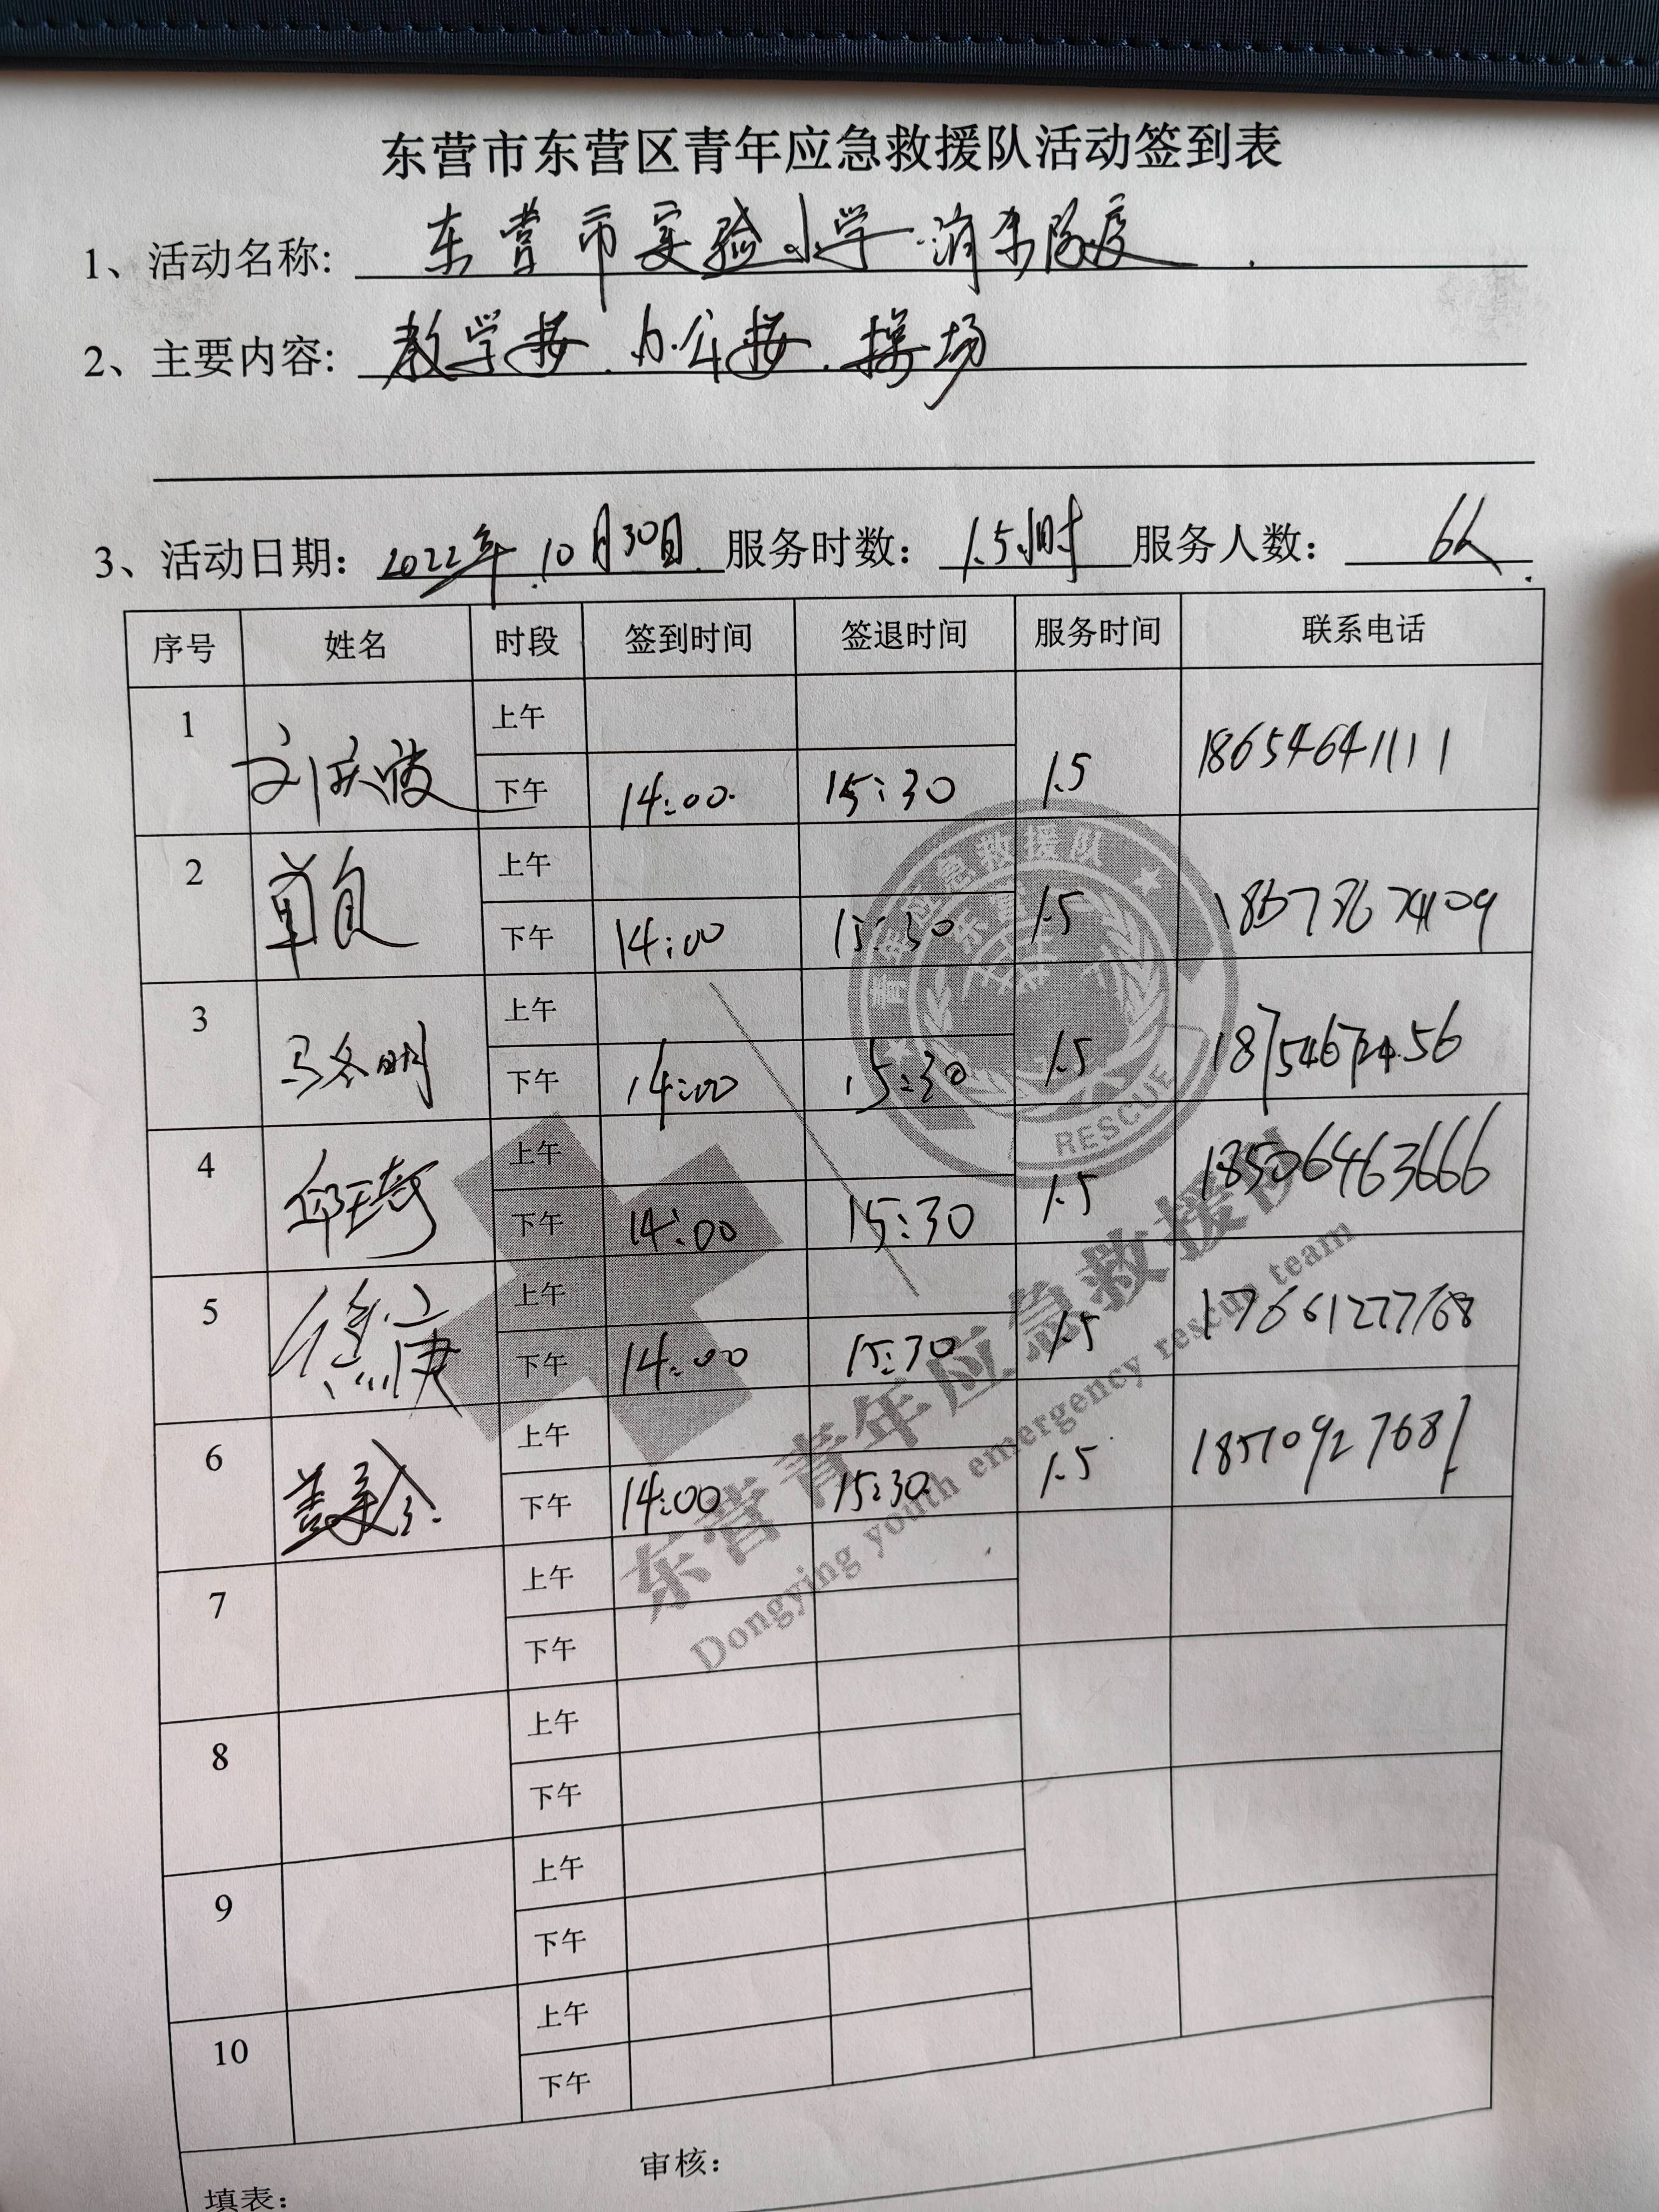 东营市东营区青年应急救援队活动签到表
1、活动名称: 东营市实验小学消杀防疫
2、主要内容: 教学楼、办公楼、操场
3、活动日期: 2022年10月30日 服务时数: 1.5小时 服务人数: 6人
序号 姓名 时段 签到时间 签退时间 服务时间 联系电话
1 上午
刘庆波 下午 14:00 15:30 1.5 18654641111
2 上午
下午 14:00 15:30 1.5
3 上午
马冬明 下午 14:00 15:30 1.5
4 上午
邱琦 下午 14:00 15:30 1.5 18506463666
5 上午
下午 14:00 15:30 1.5 17661277168
6 上午
下午 14:00 15:30 1.5 18510927681
7 上午
下午
8 上午
下午
9 上午
下午
10 上午
下午
填表: 审核:
青年应急救援队
东营
RESCUE
东营青年应急救援队
Dongying youth emergency rescue team